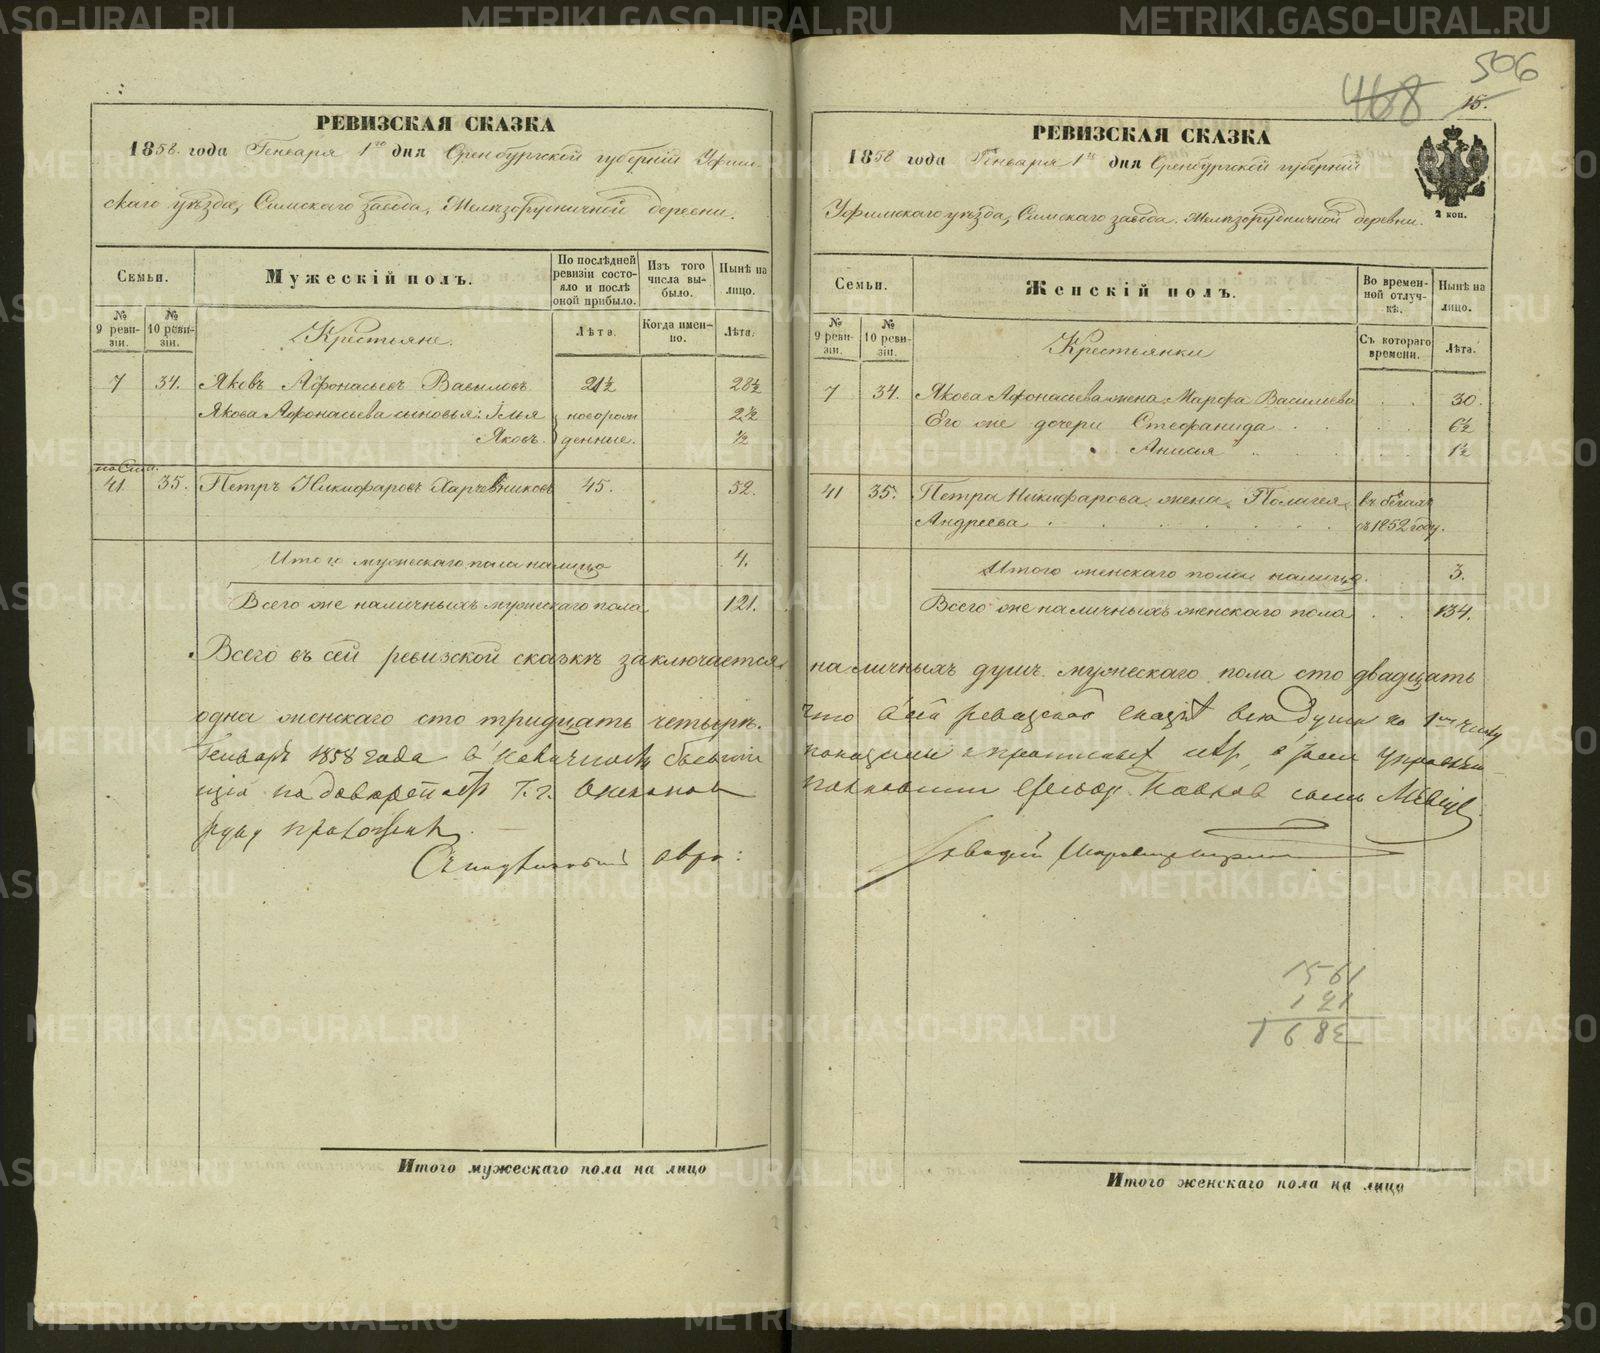 РЕВИЗСКАЯ СКАЗКА
1858. года Генваря 1го дня Оренбургской губернiи Уфим-
скаго уѣзда, Симскаго завода, Желѣзорудничной деревни.
Семьи.
Мужескiй полъ.
По послѣдней ревизiи состояло и послѣ оной прибыло.
Изъ того числа выбыло.
Нынѣ на лицо.
№ 9 ревизiи.
№ 10 ревизiи.
Крестьяне.
Лѣта.
Когда именно.
Лѣта.
7 34. Яковъ Афонасьевъ Васильевъ 21½ 28½
Якова Афонасьева сыновья: Илья новорож 2½
Яковъ. денные. ½
на Сим.
41 35. Петръ Никифаровъ Харчевниковъ 45. 52.
Итого мужескаго пола налицо 4.
Всего же наличныхъ мужескаго пола 121.
Всего въ сей ревизской сказкѣ заключается
одна женскаго сто тридцать четыре.
Генваря 1858 года в
Итого мужескаго пола на лицо
506
468
15.
РЕВИЗСКАЯ СКАЗКА
1858 года Генваря 1го дня Оренбургской губернiи
2 коп.
Уфимскаго уѣзда, Симскаго завода. Желѣзорудничной деревни.
Семьи.
Женскiй полъ.
Во временной отлучкѣ.
Нынѣ на лицо.
№ 9 ревизiи.
№ 10 ревизiи.
Крестьянки
Съ котораго времени.
Лѣта.
7 34. Якова Афонасьева жена Марфа Васильева 30.
Его же дочери Стефанида 6½
Анисья 1½
41 35. Петра Никифарова жена Полагея въ бѣгахъ
Андреева съ 1852 году.
Итого женскаго пола налицо. 3.
Всего же наличныхъ женскаго пола 134.
наличныхъ душъ мужескаго пола сто двадцать
что в сей ревизской сказке все души к 1му числу
1561
121
1682
Итого женскаго пола на лицо
METRIKI.GASO-URAL.RU